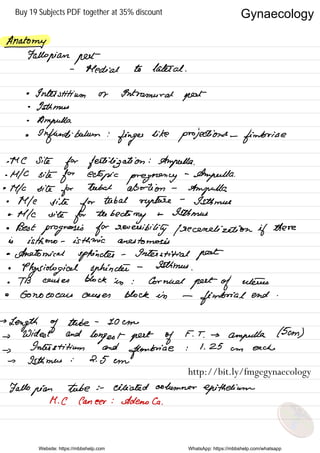 Buy 19 Subjects PDF together at 35% discount
Gynaecology
Anatomy
Fallopian part
- Medial to lateral.
• Interstitium or Intramural part
• Isthmus
• Ampulla
• Infundibulum : finger like projections - fimbriae
• M.C Site for fertilization : Ampulla.
• M/C site for ectopic pregnancy - Ampulla.
• M/c site for Tubal abortion - Ampulla
• M/c site for tubal rupture - Isthmus
• M/c site for tubectomy - Isthmus
• Best prognosis for reversibility / recanalization if there
is isthmo - isthmic anastomosis
• Anatomical sphincter - Interstitial part
• Physiological sphincter - Isthmus.
• TB causes block in : Cornual part of uterus
• Gonococcus causes block in - fimbrial end.
→ Length of tube - 10 cm
→ Widest and longest part of F.T. → ampulla (5cm)
→ Interstitium and fimbriae : 1.25 cm each
→ Isthmus : 2.5 cm
http://bit.ly/fmgegynaecology
Fallopian tube :- ciliated columnar epithelium
M.C Cancer : Adeno Ca.
Website: https://mbbshelp.com
WhatsApp: https://mbbshelp.com/whatsapp